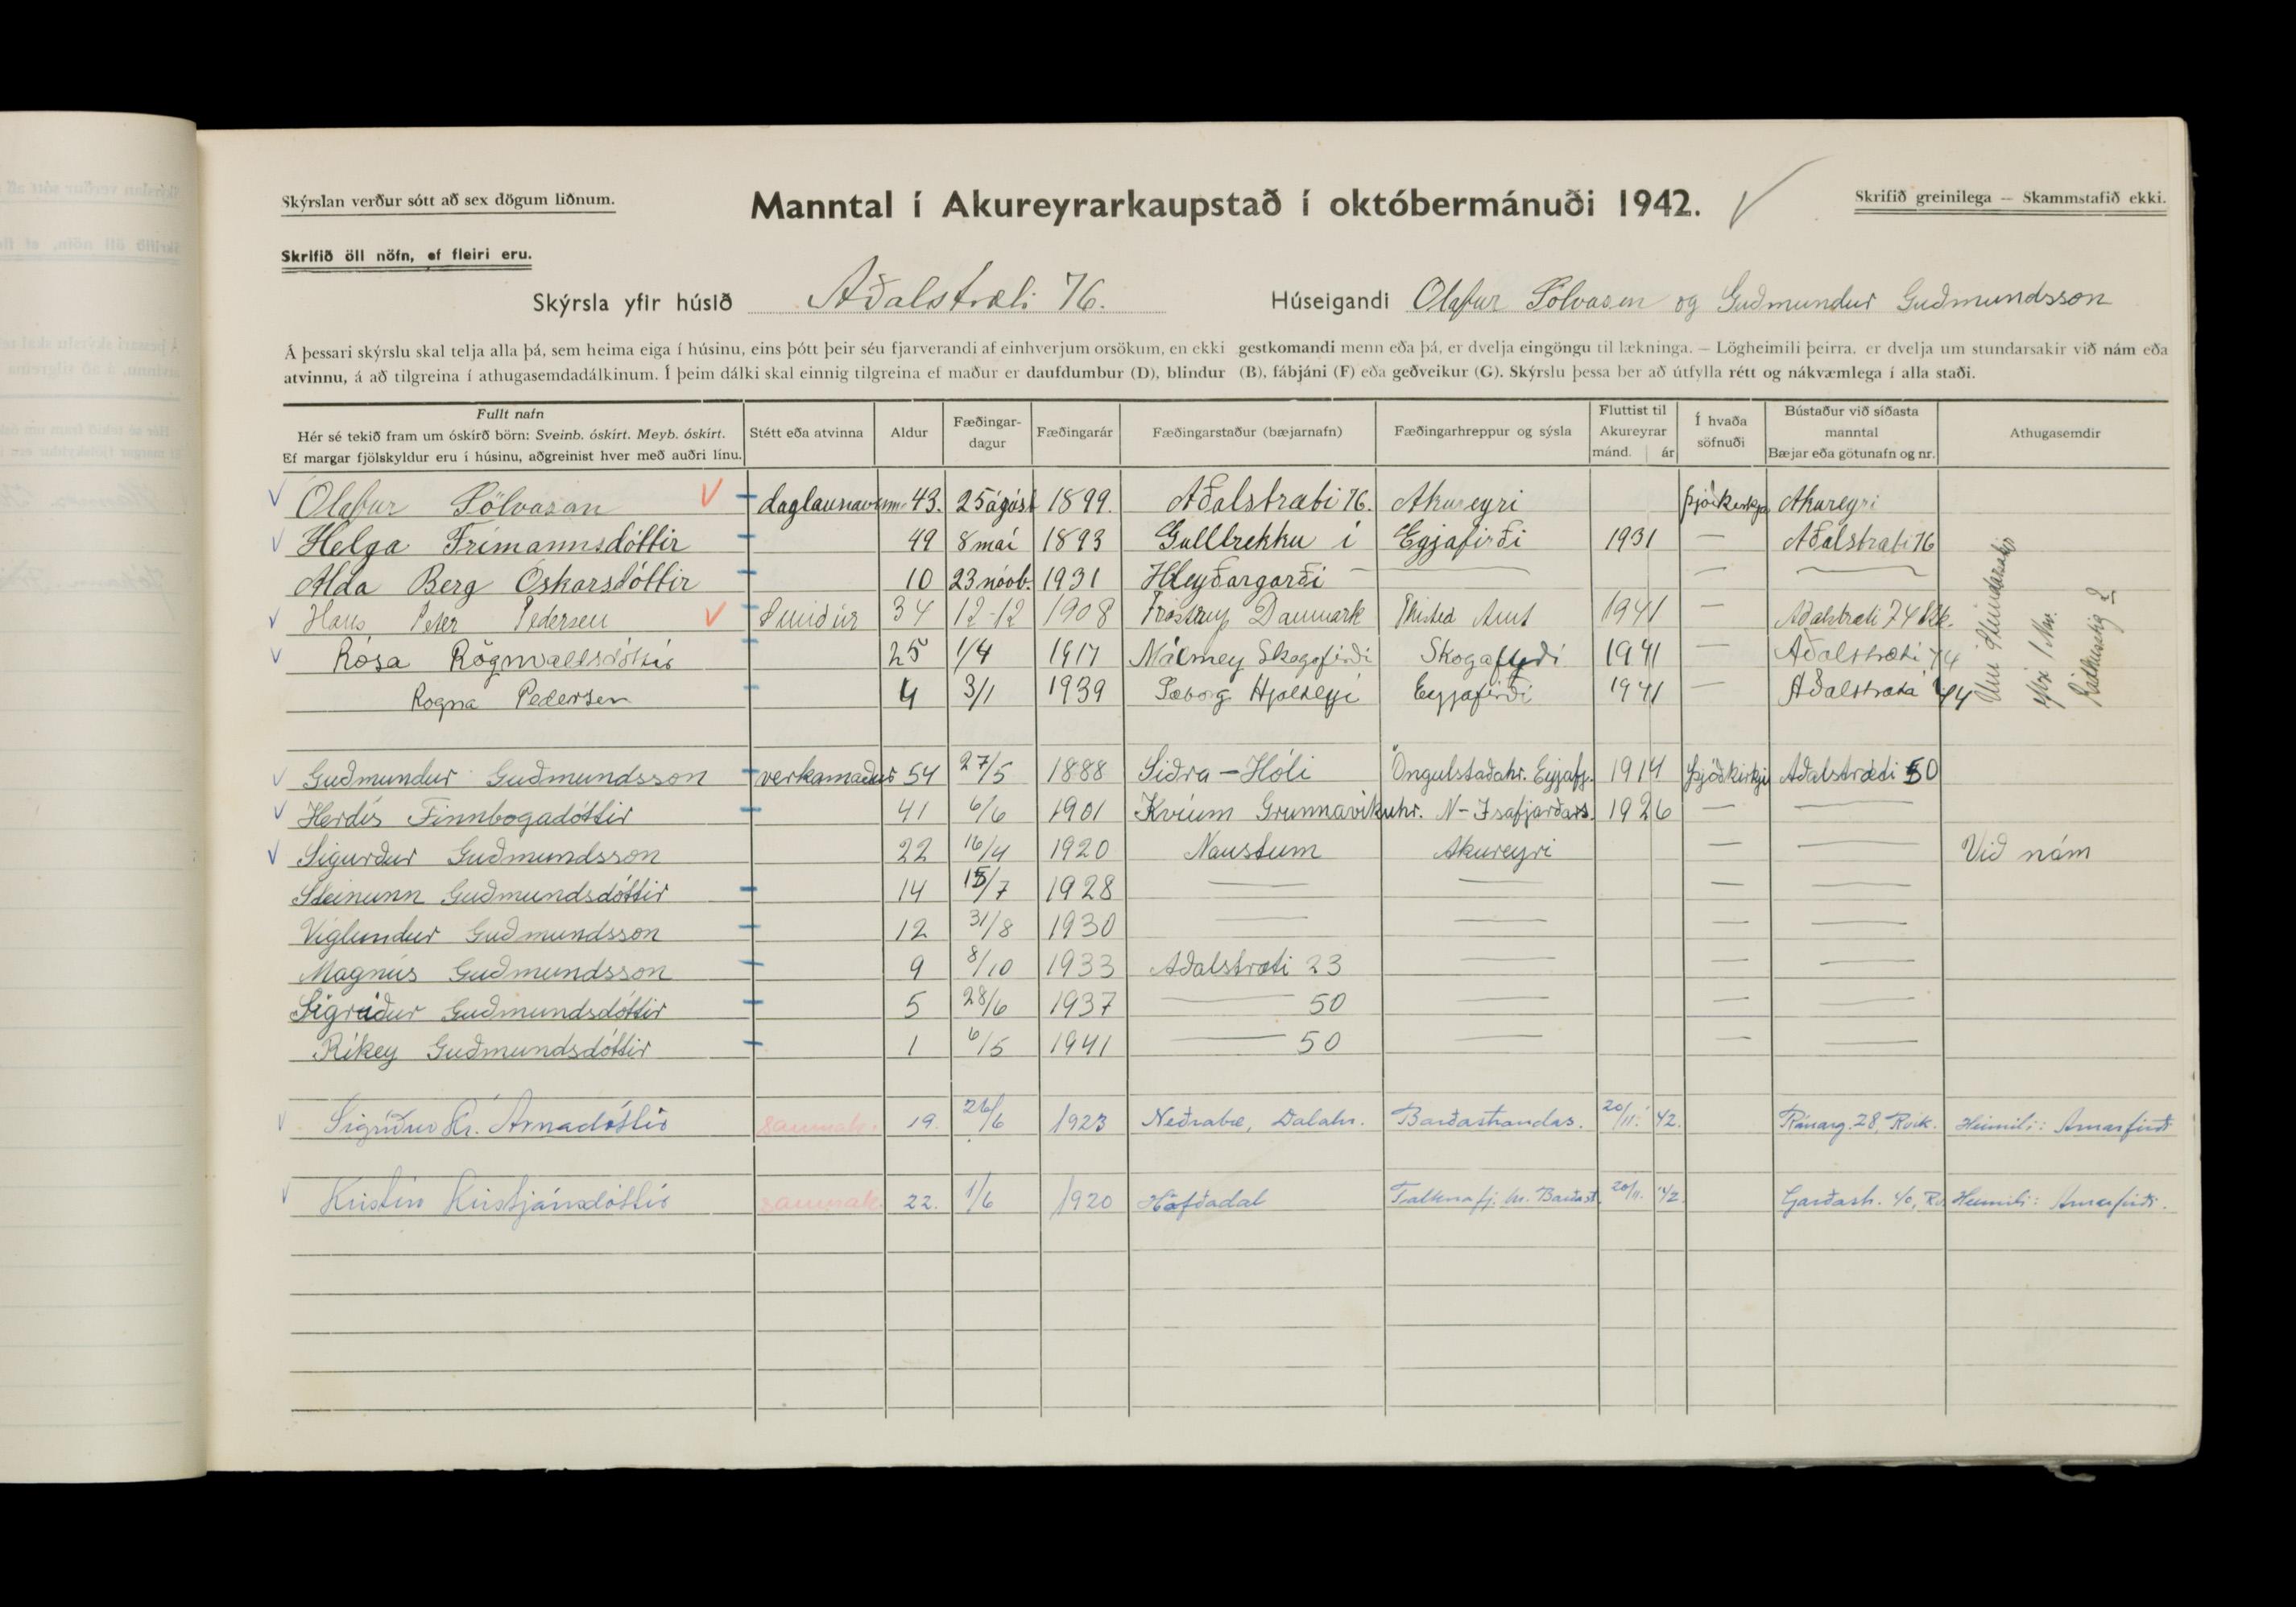 Skýrslan verður sótt að sex dögum liðnum.
Manntal í Akureyrarkaupstað í októbermánuði 1942.
Skrifið greinilega — Skammstafið ekki.
Skrifið öll nöfn, ef fleiri eru.
Skýrsla yfir húsið Aðalstræti 76. Húseigandi Olafur Sölvason og Guðmundur Guðmundsson
Á þessari skýrslu skal telja alla þá, sem heima eiga í húsinu, eins þótt þeir séu fjarverandi af einhverjum orsökum, en ekki gestkomandi menn eða þá, er dvelja eingöngu til lækninga. — Lögheimili þeirra, er dvelja um stundarsakir við nám eða
atvinnu, á að tilgreina í athugasemdadálkinum. Í þeim dálki skal einnig tilgreina ef maður er daufdumbur (D), blindur (B), fábjáni (F) eða geðveikur (G). Skýrslu þessa ber að útfylla rétt og nákvæmlega í alla staði.
Fullt nafn
Hér sé tekið fram um óskírð börn: Sveinb. óskírt. Meyb. óskírt.
Ef margar fjölskyldur eru í húsinu, aðgreinist hver með auðri línu.
Stétt eða atvinna
Aldur
Fæðingar-
dagur
Fæðingarár
Fæðingarstaður (bæjarnafn)
Fæðingarhreppur og sýsla
Fluttist til
Akureyrar
mánd. ár
Í hvaða
söfnuði
Bústaður við síðasta
manntal
Bæjar eða götunafn og nr.
Athugasemdir
Olafur Sölvason daglaunavinna 43. 25 ágúst 1899. Aðalstræti 76. Akureyri þjóðkirkja Akureyri
Helga Frímannsdóttir 49 8 maí 1893 Gullbrekku í Eyjafirði 1931 — Aðalstræti 76
Alda Berg Óskarsdóttir 10 23 nóvb. 1931 Hleyðargarði — — —
Hans Peter Pedersen Smiður 34 12-12 1908 Frøstrup Danmark Thisted Amt 1941 — Aðalstræti 74 Ak.
Rósa Rögnvaldsdóttir 25 1/4 1917 Málmey Skagafirði Skagafirði 1941 — Aðalstræti 74
Ragna Pedersen 4 3/1 1939 Sæborg Hjalteyri Eyjafirði 1941 — Aðalstræti 74
Um stundarsakir
Guðmundur Guðmundsson verkamaður 54 27/5 1888 Siðra-Hóli Öngulstaðahr. Eyjafj. 1914 þjóðkirkju Aðalstræti 50
Herdís Finnbogadóttir 41 6/6 1901 Kvíum Grunnavíkurhr. N-Ísafjarðars. 1926 — —
Sigurður Guðmundsson 22 16/4 1920 Naustum Akureyri — — Við nám
Steinunn Guðmundsdóttir 14 15/7 1928 — — — —
Víglundur Guðmundsson 12 31/8 1930 — — — —
Magnús Guðmundsson 9 8/10 1933 Aðalstræti 23 — — —
Sigríður Guðmundsdóttir 5 28/6 1937 — 50 — — —
Ríkey Guðmundsdóttir 1 6/5 1941 — 50 — — —
Sigríður Kr. Árnadóttir saumak. 19. 26/6 1923 Neðrabæ, Dalahr. Barðastrandas. 20/11. '42. Ránarg. 28, Rvík. Heimili: Arnarfirði
Kristín Kristjánsdóttir saumak. 22. 1/6 1920 Höfðadal Tálknafj. hr. Barðast. 20/11. '42. Garðastr. 40, Rv. Heimili: Arnarfirði.